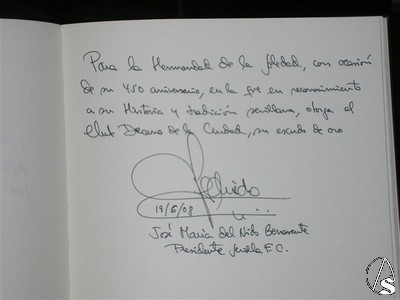 Para la Hermandad de la Soledad, con ocasión
de su 450 aniversario, en la que en reconocimiento
a su Historia y tradición sevillana, otorga el
Club Decano de la Ciudad, su escudo de oro
19/6/08
José María del Nido Benavente
Presidente Sevilla F.C.